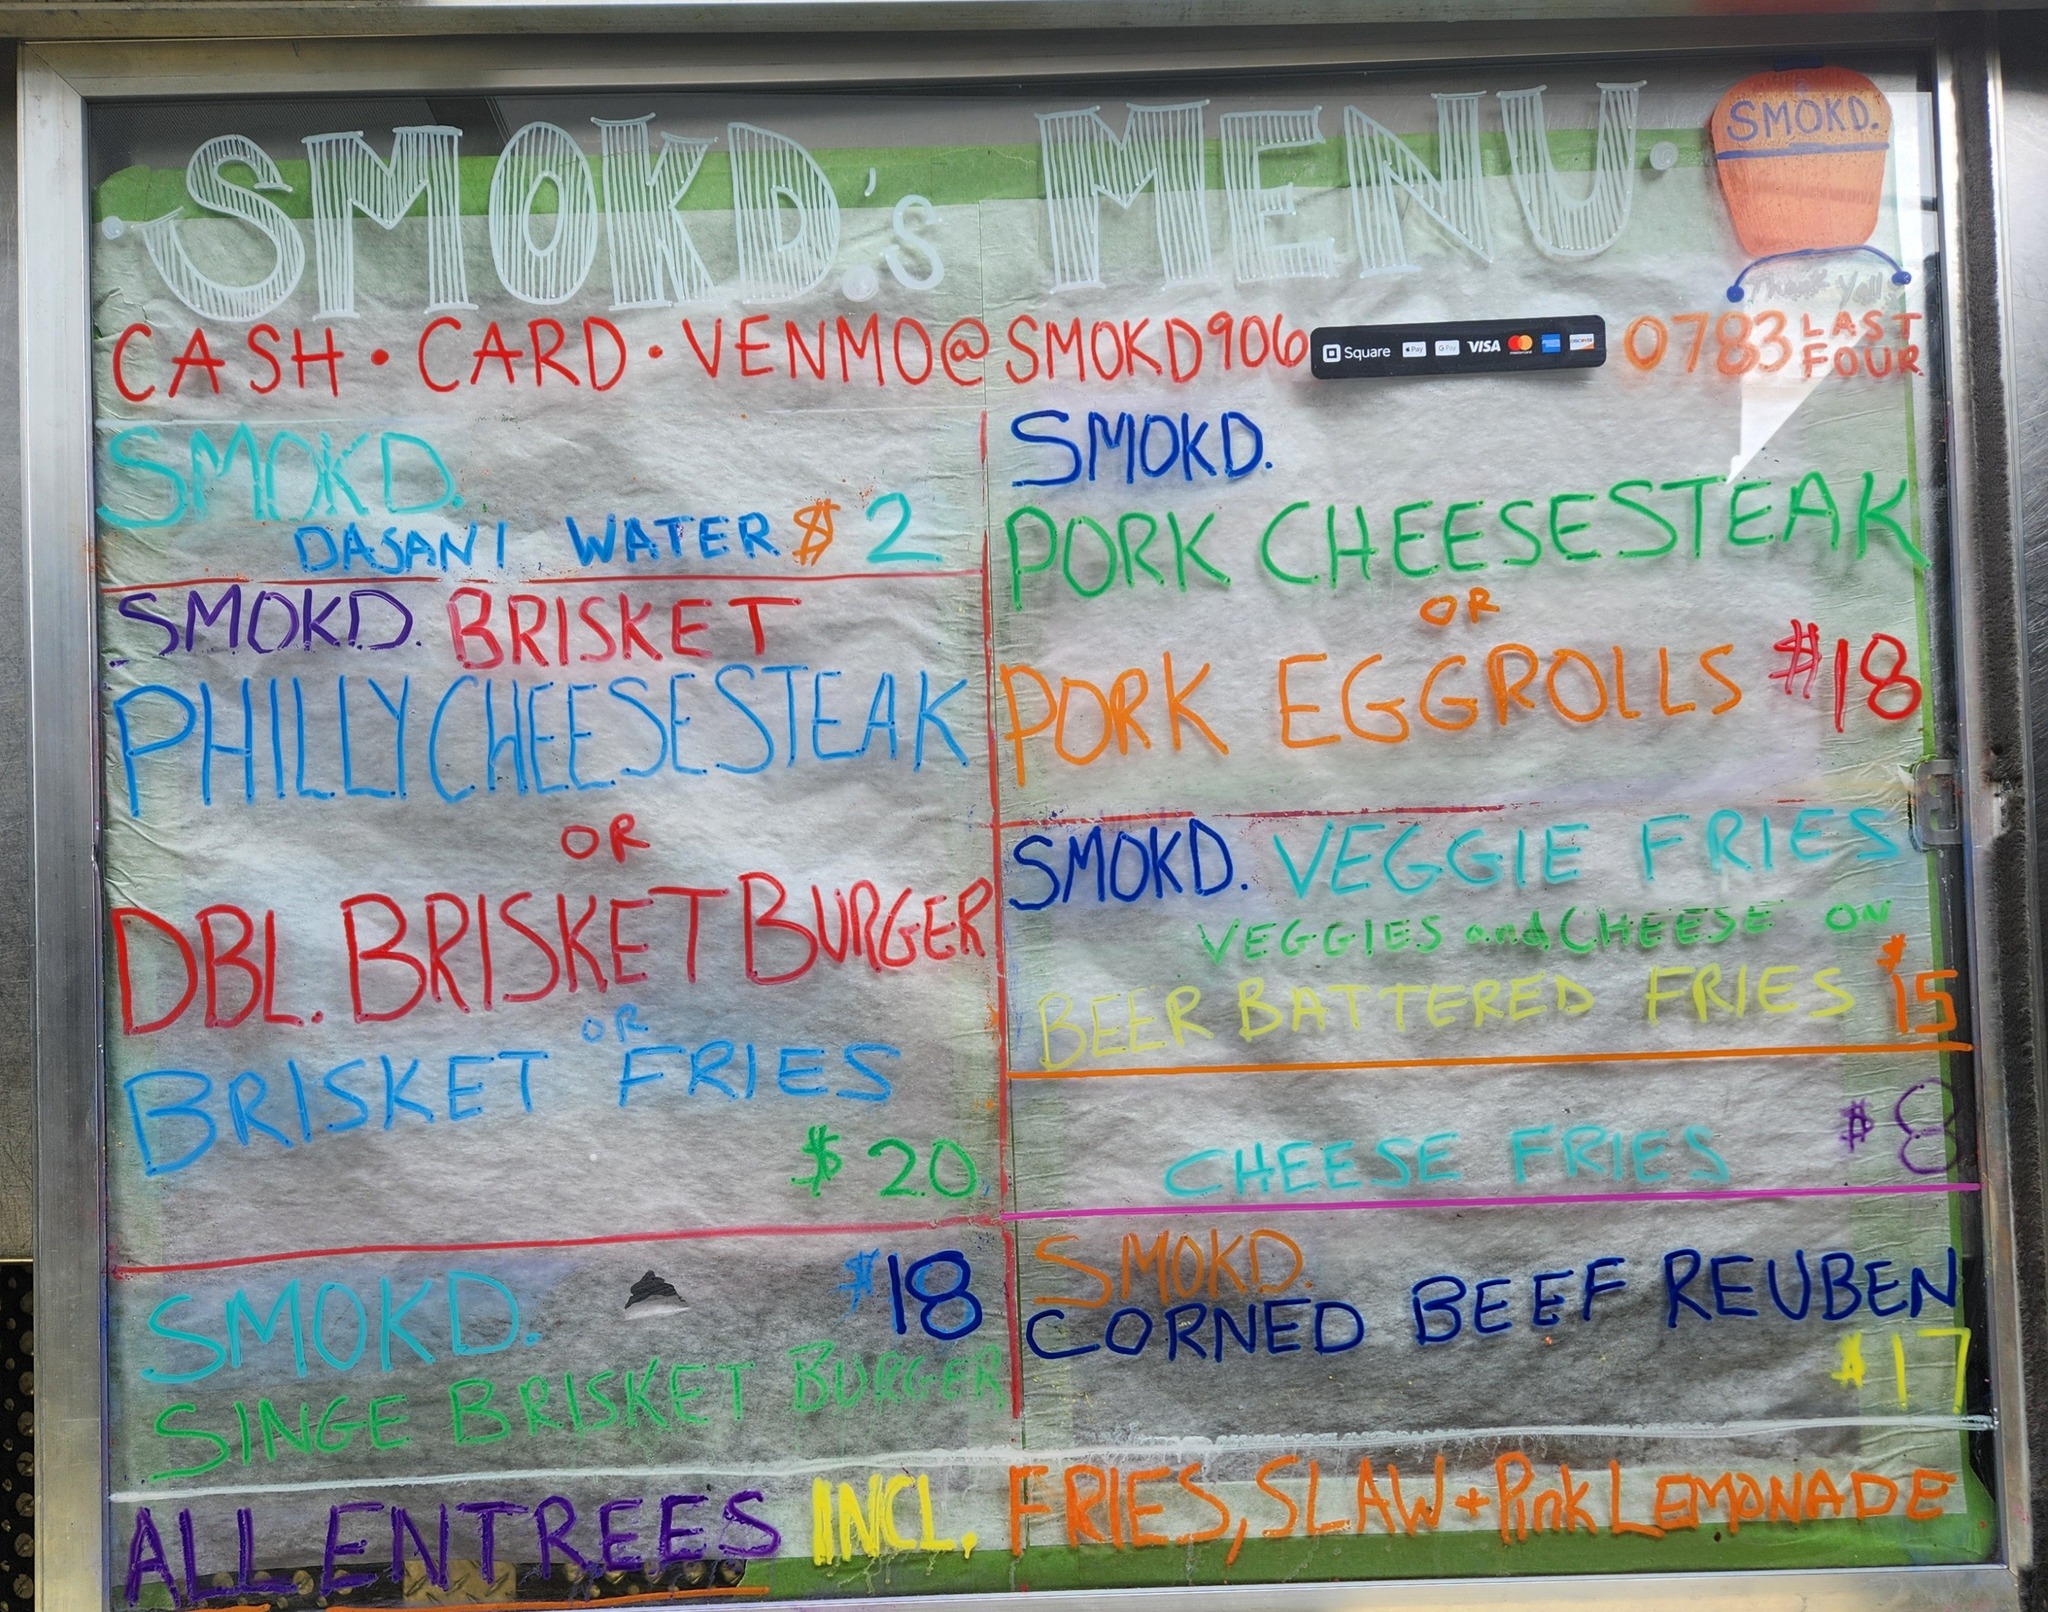 SMOKD.'s MENU.
SMOKD.
Thank Yall
CASH • CARD • VENMO@SMOKD906
Square Pay G Pay VISA mastercard DISCOVER
0783 LAST FOUR
SMOKD.
DASANI WATER $2
SMOKD. BRISKET
PHILLY CHEESESTEAK
OR
DBL. BRISKET BURGER
OR
BRISKET FRIES
$20
SMOKD. $18
SINGE BRISKET BURGER
SMOKD.
PORK CHEESESTEAK
OR
PORK EGGROLLS $18
SMOKD. VEGGIE FRIES
VEGGIES and CHEESE ON
BEER BATTERED FRIES $15
CHEESE FRIES $8
SMOKD.
CORNED BEEF REUBEN
$17
ALL ENTREES INCL. FRIES, SLAW + Pink LEMONADE